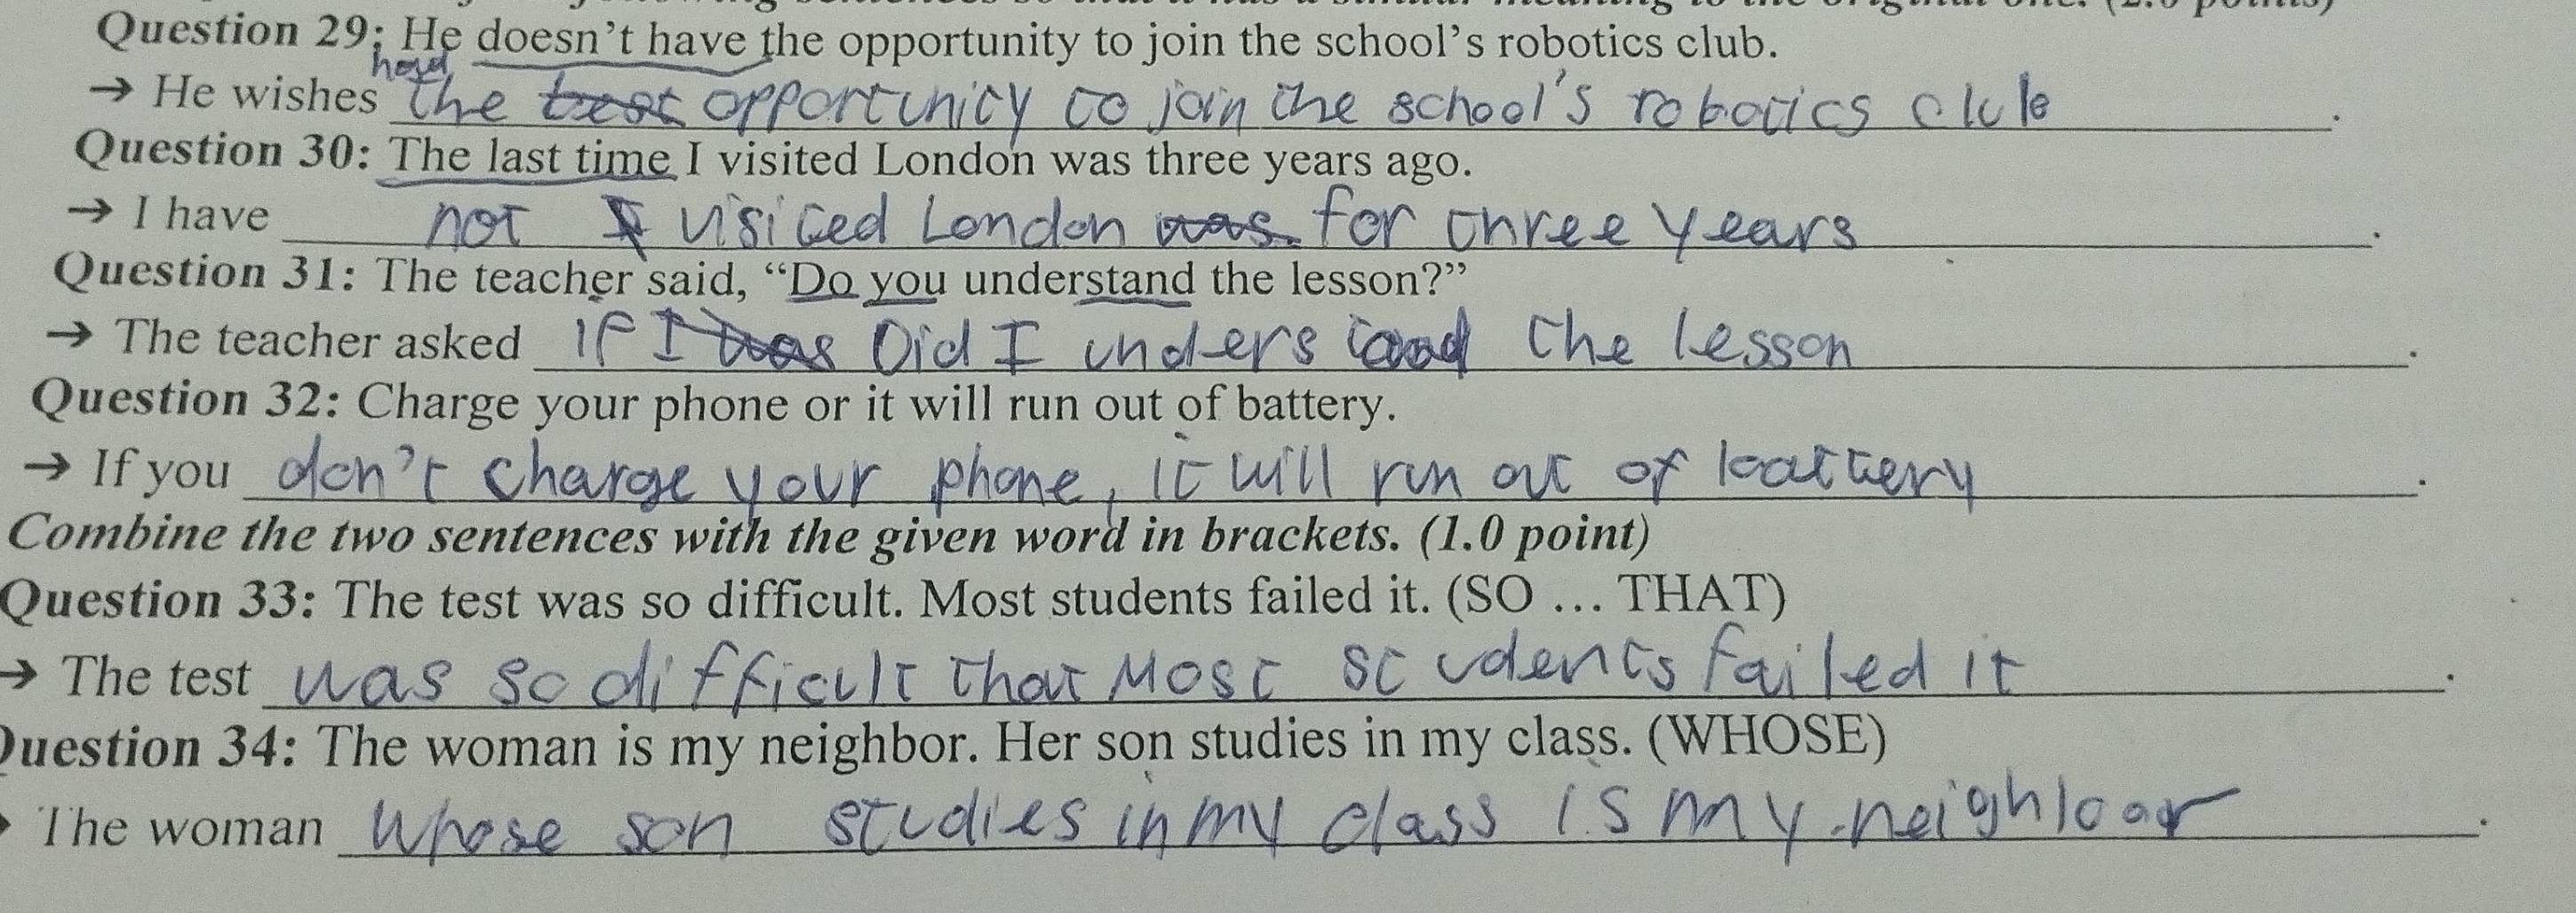 Question 29: He doesn't have the opportunity to join the school's robotics club.
had
→ He wishes the opportunity to join the school's robotics club.
Question 30: The last time I visited London was three years ago.
→ I have not visited London for three years.
Question 31: The teacher said, “Do you understand the lesson?”
→ The teacher asked If Did I understood the lesson.
Question 32: Charge your phone or it will run out of battery.
→ If you don't charge your phone, it will run out of battery.
Combine the two sentences with the given word in brackets. (1.0 point)
Question 33: The test was so difficult. Most students failed it. (SO … THAT)
→ The test was so difficult that Most students failed it.
Question 34: The woman is my neighbor. Her son studies in my class. (WHOSE)
The woman whose son studies in my class is my neighbor.